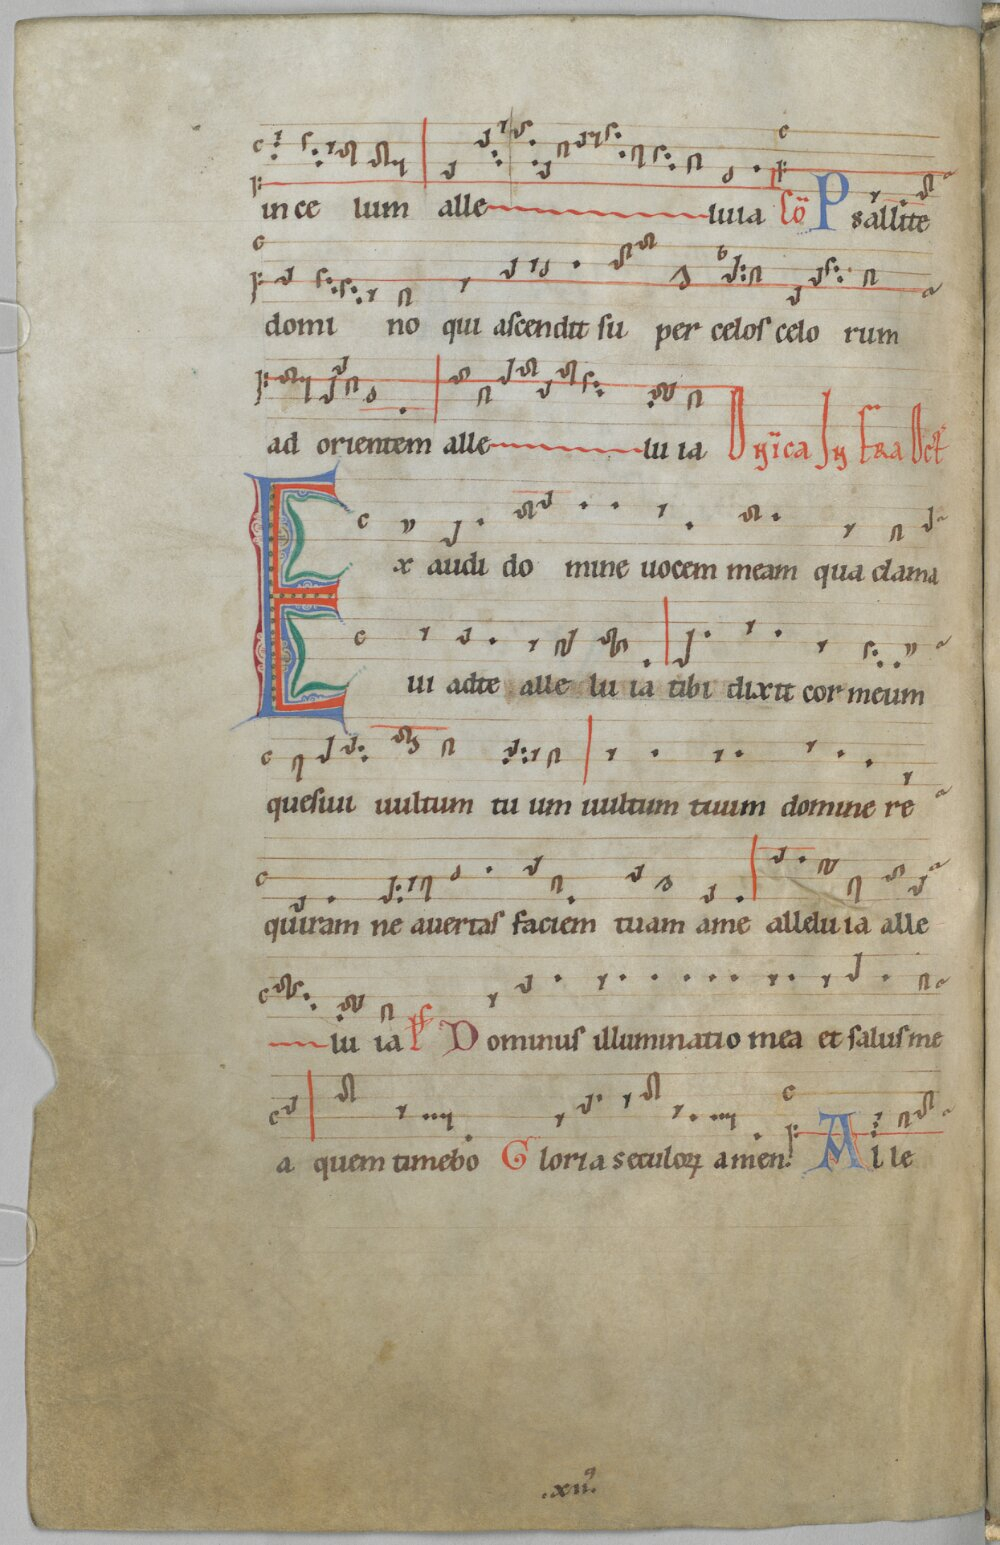 in ce lum alle luia Co Psallite
domi no qui ascendit su per celos celo rum
ad orientem alle lu ia Dnica In fra Oct
Ex audi do mine uocem meam qua clama
ui adte alle lu ia tibi dixit cor meum
quesiui uultum tu um uultum tuum domine re
quiram ne auertas faciem tuam ame allelu ia alle
lu ia Ps Dominus illuminatio mea et salus me
a quem timebo Gloria seculoꝝ amen. Al le
.xii⁹.